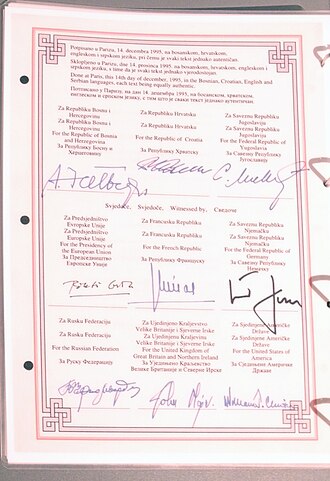 Potpisano u Parizu, 14. decembra 1995, na bosanskom, hrvatskom,
engleskom i srpskom jeziku, pri čemu je svaki tekst jednako autentičan.
Sklopljeno u Parizu, dne 14. prosinca 1995, na bosanskom, hrvatskom, engleskom i
srpskom jeziku, s time da je svaki tekst jednako vjerodostojan.
Done at Paris, this 14th day of december, 1995, in the Bosnian, Croatian, English and
Serbian languages, each text being equally authentic.
Потписано у Паризу, на дан 14. децембра 1995, на босанском, хрватском,
енглеском и српском језику, с тим што је сваки текст једнако аутентичан.
Za Republiku Bosnu i
Hercegovinu
Za Republiku Bosnu i
Hercegovinu
For the Republic of Bosnia
and Herzegovina
За Републику Босну и
Херцеговину
Za Republiku Hrvatsku
For the Republic of Croatia
За Републику Хрватску
Za Saveznu Republiku
Jugoslaviju
Za Saveznu Republiku
Jugoslaviju
For the Federal Republic of
Yugoslavia
За Савезну Републику
Југославију
Svjedoče, Svjedoče, Witnessed by, Сведоче
Za Predsjedništvo
Europske Unije
Za Predsjedništvo
Europske Unije
For the Presidency of
the European Union
За Председништво
Европске Уније
Za Francusku Republiku
For the French Republic
За Републику Француску
Za Saveznu Republiku
Njemačku
Za Saveznu Republiku
Njemačku
For the Federal Republic of
Germany
За Савезну Републику
Немачку
Za Rusku Federaciju
For the Russian Federation
За Руску Федерацију
Za Ujedinjeno Kraljevstvo
Velike Britanije i Sjeverne Irske
Za Ujedinjenu Kraljevinu
Velike Britanije i Sjeverne Irske
For the United Kingdom of
Great Britain and Northern Ireland
За Уједињено Краљевство
Велике Британије и Северне Ирске
Za Sjedinjene Američke
Države
Za Sjedinjene Američke
Države
For the United States of
America
За Сједињене Америчке
Државе